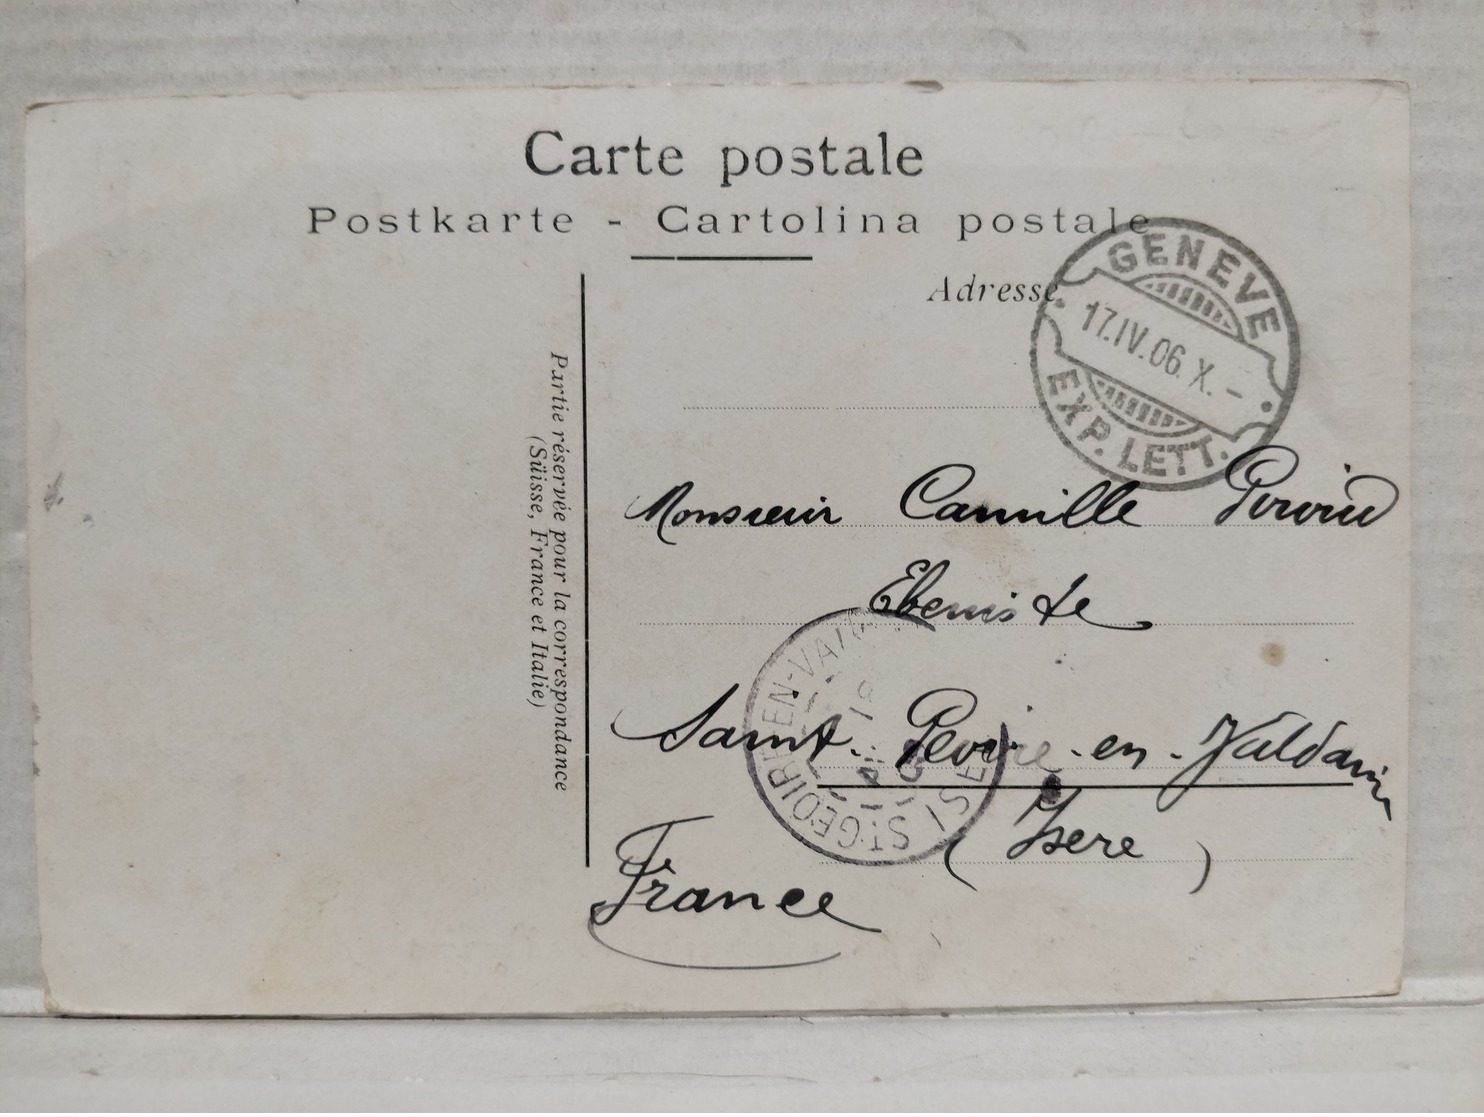 Carte postale
Postkarte - Cartolina postale
Adresse
GENEVE
17.IV.06. X. -
EXP. LETT.
Partie réservée pour la correspondance
(Süisse, France et Italie)
Monsieur Camille
Ebeniste
Saint- -en-Valdaine
(Isere)
France
ST GEOIRE-EN-VALD
18
ISERE